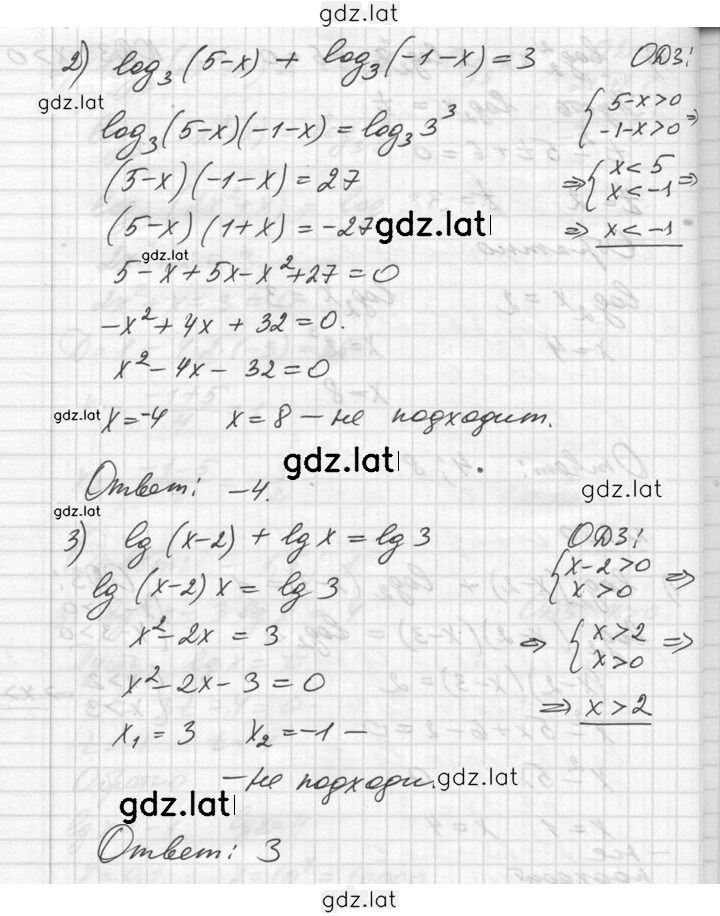 gdz.lat
2) log₃(5-x) + log₃(-1-x) = 3 ОДЗ:
gdz.lat
log₃(5-x)(-1-x) = log₃3³ { 5-x>0 -1-x>0 ⇒
(5-x)(-1-x) = 27 ⇒ { x<5 x<-1 ⇒
(5-x)(1+x) = -27 gdz.lat ⇒ x<-1
gdz.lat
5-x+5x-x²+27=0
-x²+4x+32=0.
x²-4x-32=0
gdz.lat x=-4 x=8 - не подходит.
gdz.lat
Ответ: -4. gdz.lat
gdz.lat
3) lg(x-2) + lg x = lg 3 ОДЗ:
lg(x-2)x = lg 3 { x-2>0 x>0 ⇒
x²-2x = 3 ⇒ { x>2 x>0 ⇒
x²-2x-3=0 ⇒ x>2
x₁=3 x₂=-1 -
- не подходи. gdz.lat
gdz.lat
Ответ: 3
gdz.lat